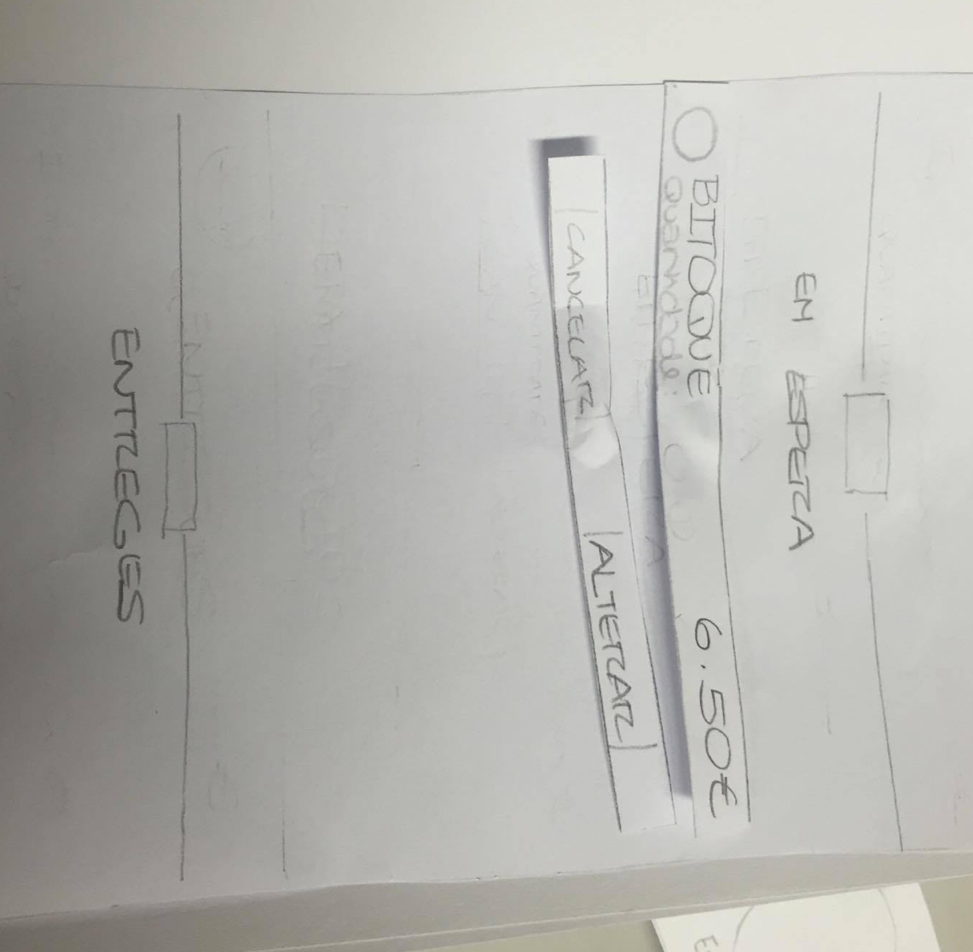 EM ESPERA
BITOQUE 6.50€
Quantidade:
CANCELAR ALTERAR
ENTREGES